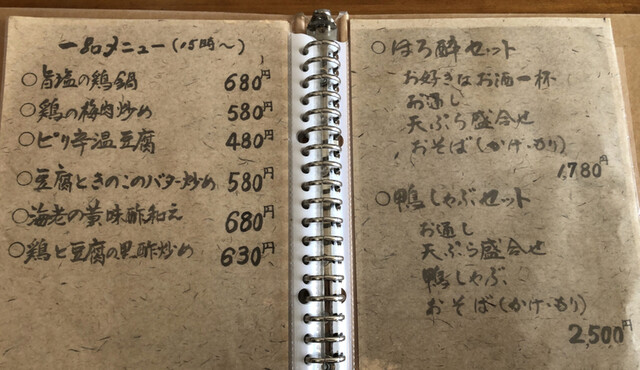 一品メニュー(15時〜)
○旨塩の鶏鍋 680円
○鶏の梅肉炒め 580円
○ピリ辛温豆腐 480円
○豆腐ときのこのバター炒め 580円
○海老の黄味酢和え 680円
○鶏と豆腐の黒酢炒め 630円
○ほろ酔セット
お好きなお酒一杯
お通し
天ぷら盛合せ
おそば(かけ・もり)
1,780円
○鴨しゃぶセット
お通し
天ぷら盛合せ
鴨しゃぶ
おそば(かけ・もり)
2,500円